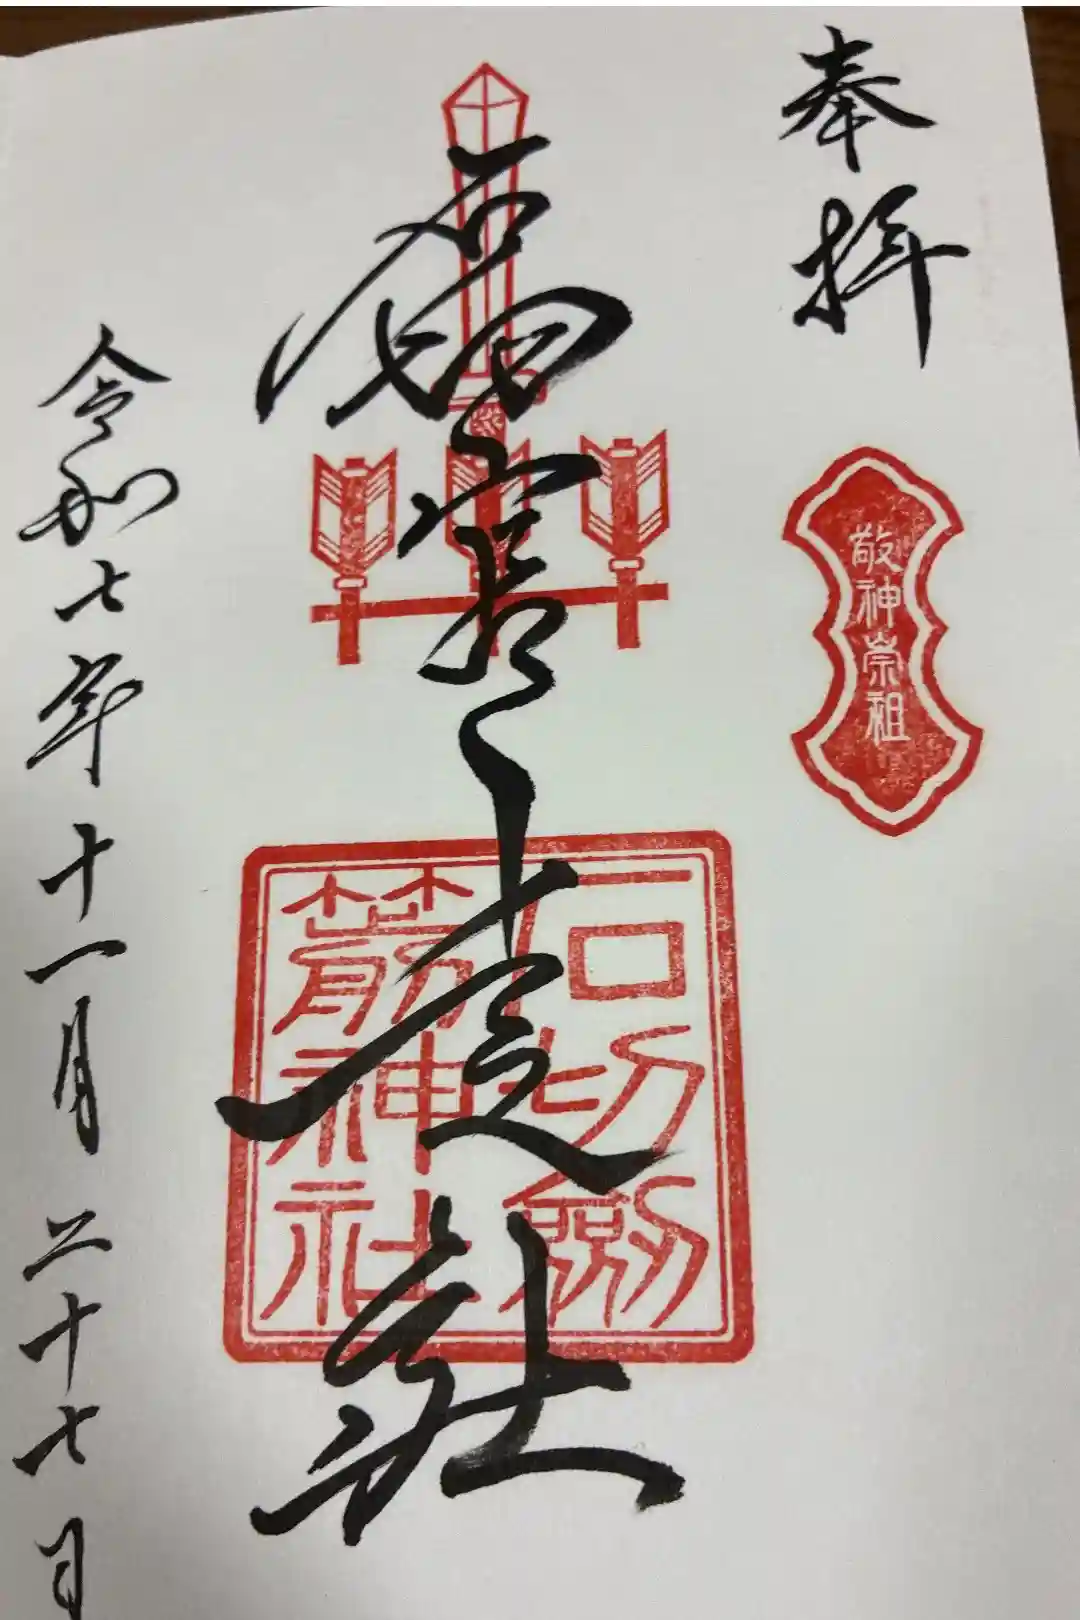 奉拝
敬神崇祖
石切劔
箭神社
令和七年十一月二十七日